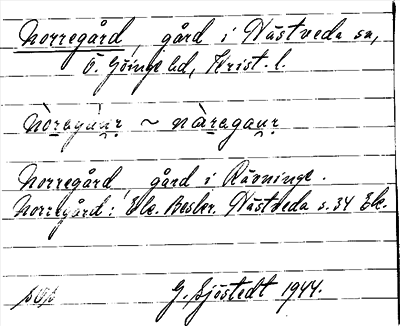 Norregård, gård i Nästveda sn,
Ö. Göinge hd, Krist. l.
nòregàu̯r ~ nàregau̯r
Norregård, gård i Rävninge.
Norregård: Ek. Beskr. Nästveda s. 34 Ek.
G. Sjöstedt 1944.